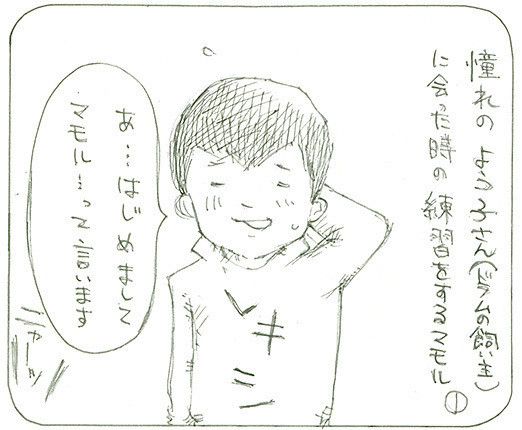 憧れの よう子さん(ドラムの飼い主)
に会った時の 練習をするマモル
①
あ…はじめまして
マモル…って言います
キ
ニャーッ